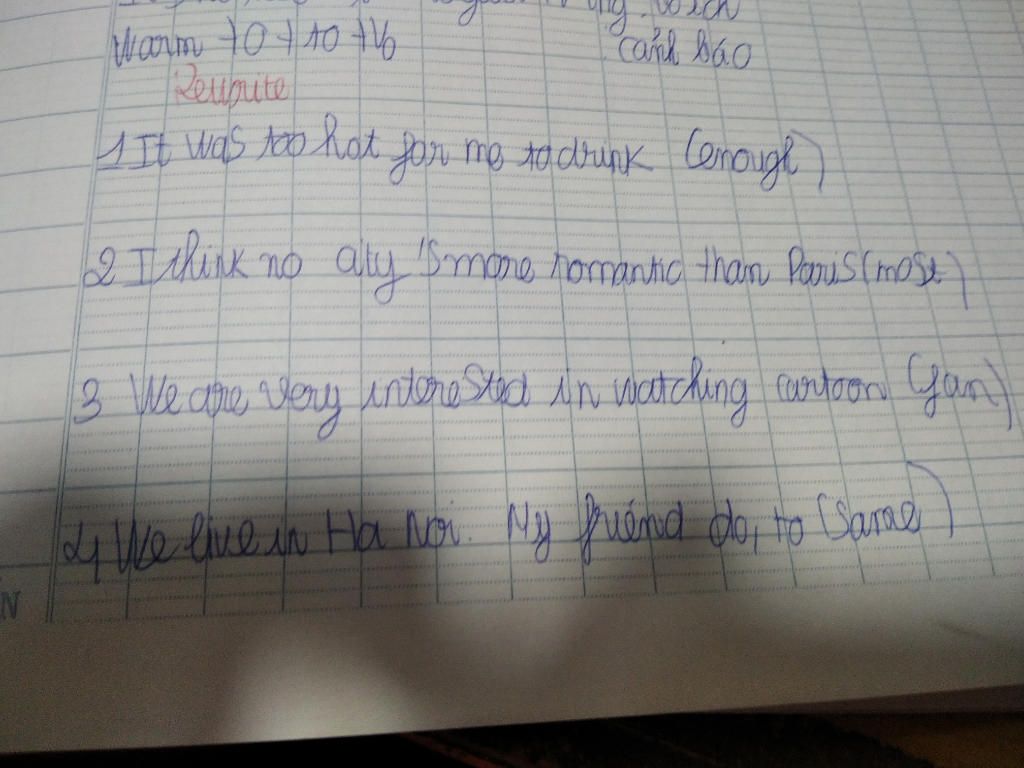 Warm + O + to + V0 cảnh báo
Rewrite
1 It was too hot for me to drink (enough)
2 I think no city 's more romantic than Paris (most)
3 We are very interested in watching cartoon (fan)
4 We live in Ha Noi. My friend do, to (same)
N